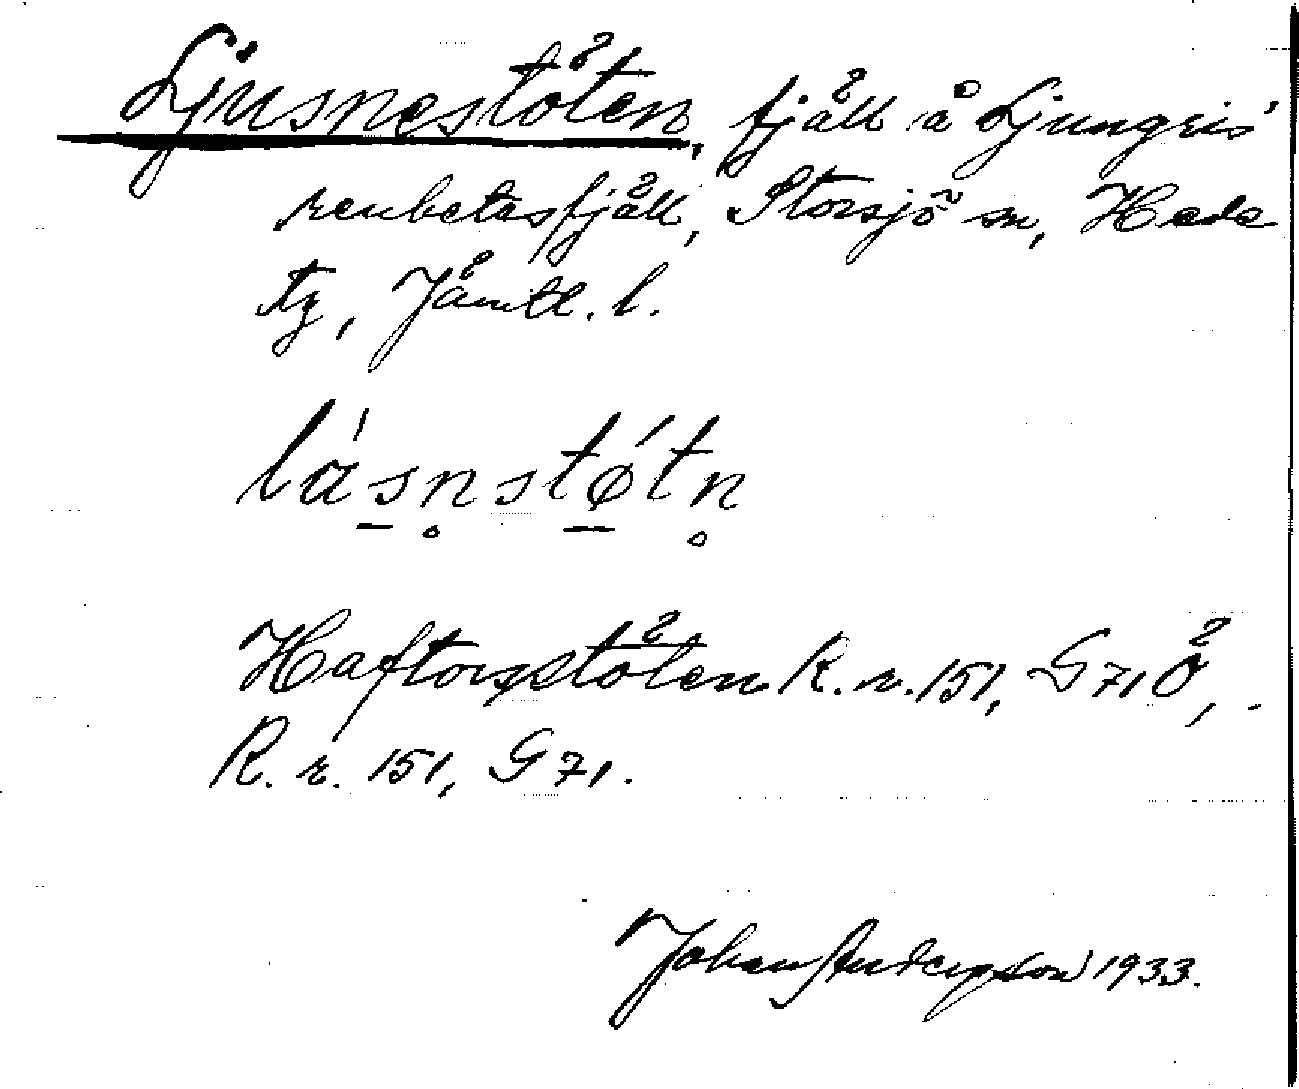 Ljusnestöten, fjäll å Ljungris'
renbetesfjäll, Storsjö sn, Heds
tg, Jämtl. l.
làsn̥støt́n̥
Haftorsstöten R. r. 151, G 71 Ö,
R. r. 151, G 71.
Johan Andersson 1933.